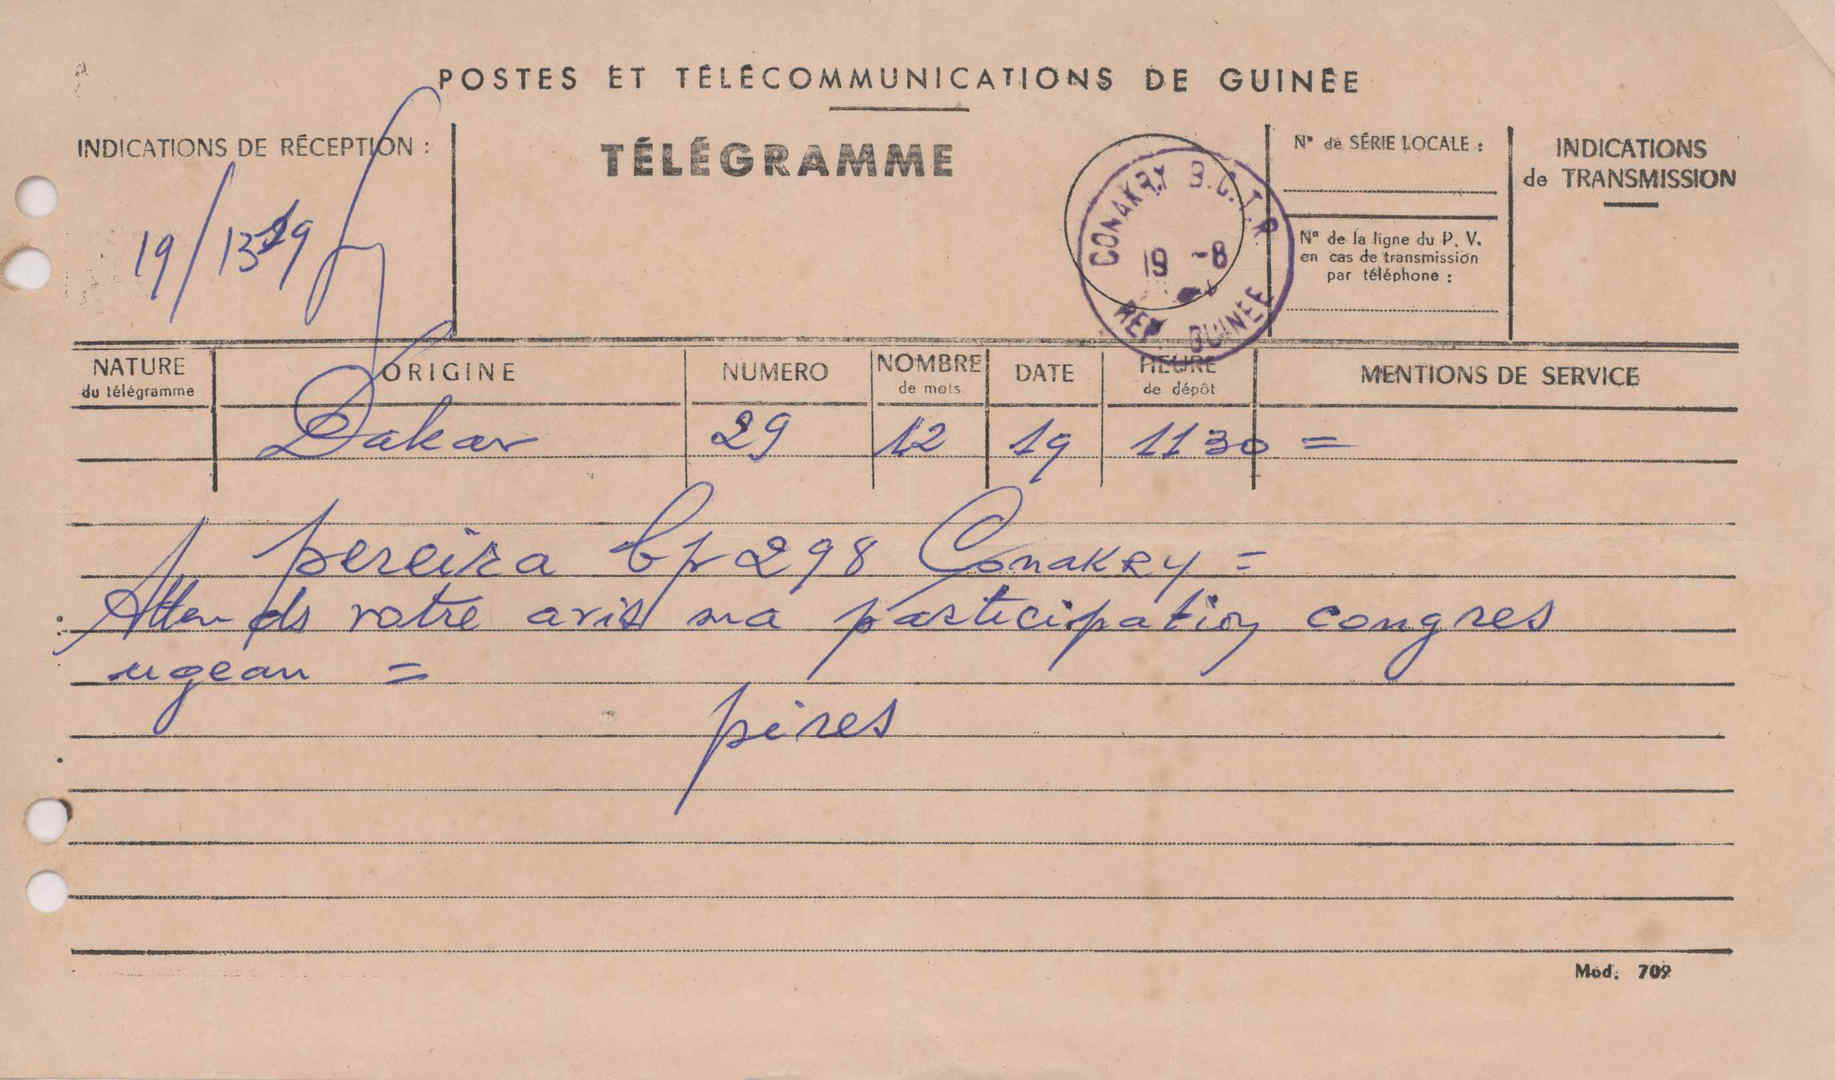 POSTES ET TÉLÉCOMMUNICATIONS DE GUINÉE
INDICATIONS DE RÉCEPTION :
19/1329
TÉLÉGRAMME
CONAKRY B.C.T.R
19 -8
REP GUINÉE
N° de SÉRIE LOCALE :
N° de la ligne du P. V.
en cas de transmission
par téléphone :
INDICATIONS
de TRANSMISSION
NATURE
du télégramme
ORIGINE
NUMERO
NOMBRE
de mots
DATE
HEURE
de dépôt
MENTIONS DE SERVICE
Dakar 29 12 19 1130 =
pereira bp 298 Conakry =
Attends votre avis ma participation congres
ugean =
pires
Mod. 709